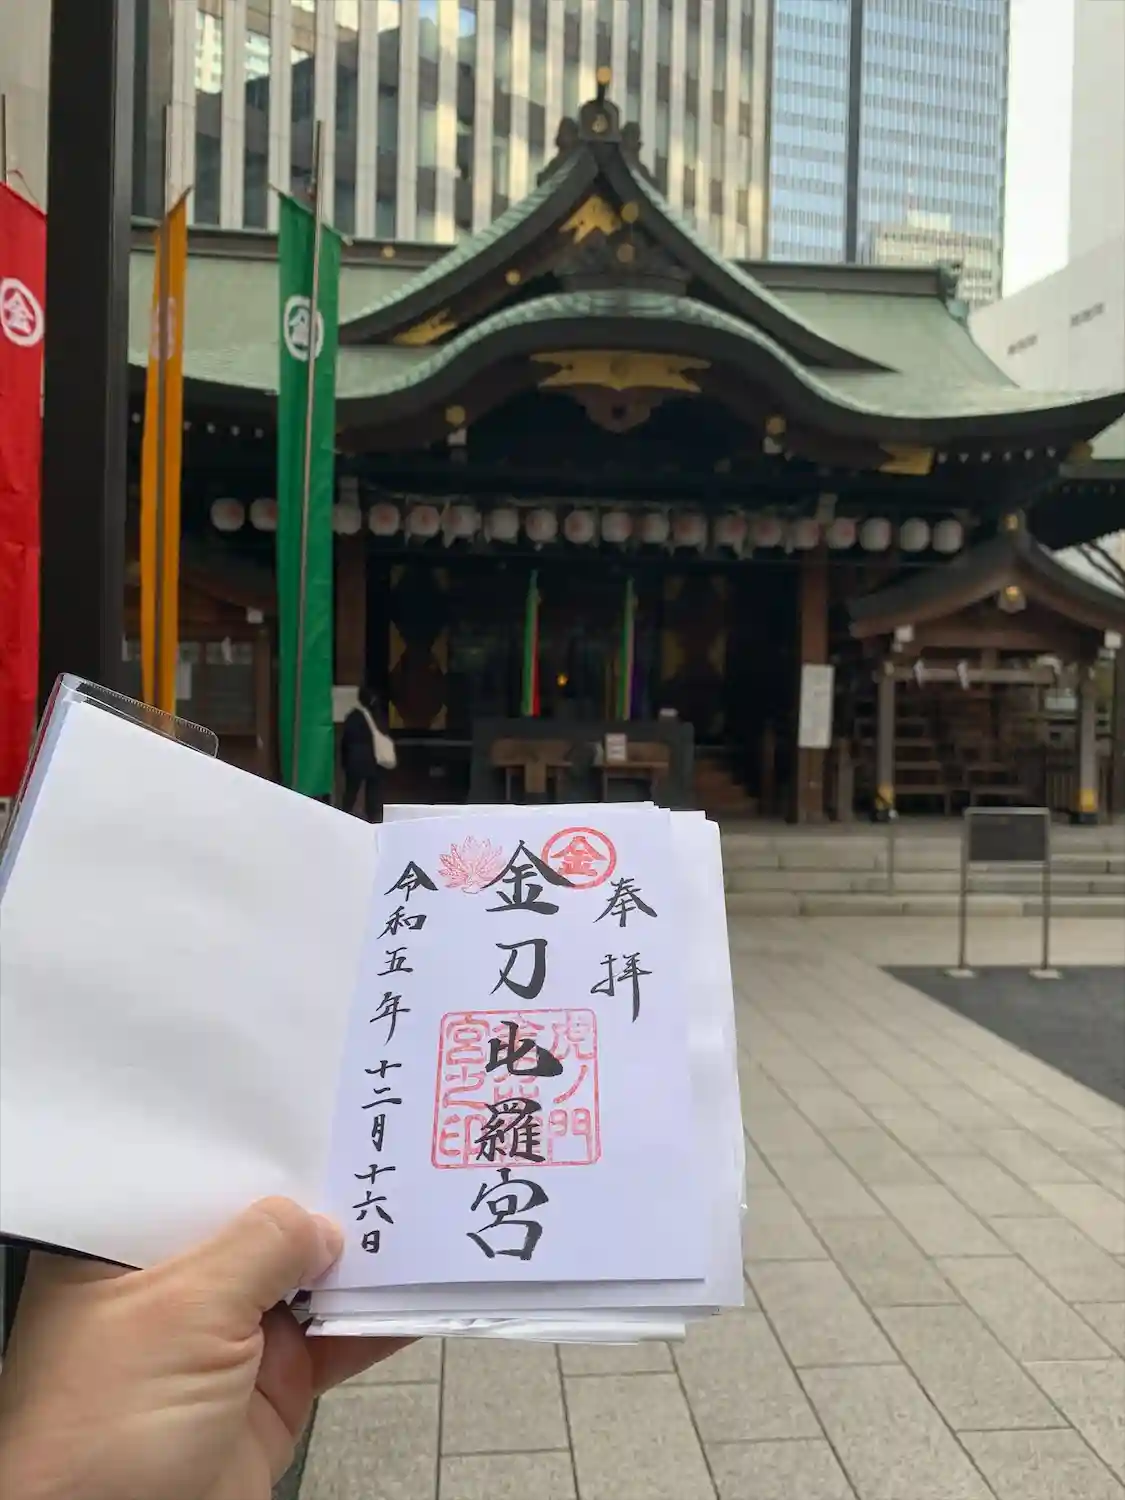 奉拝
金刀比羅宮
令和五年十二月十六日
金
虎ノ門
金刀比羅
宮之印
金
金